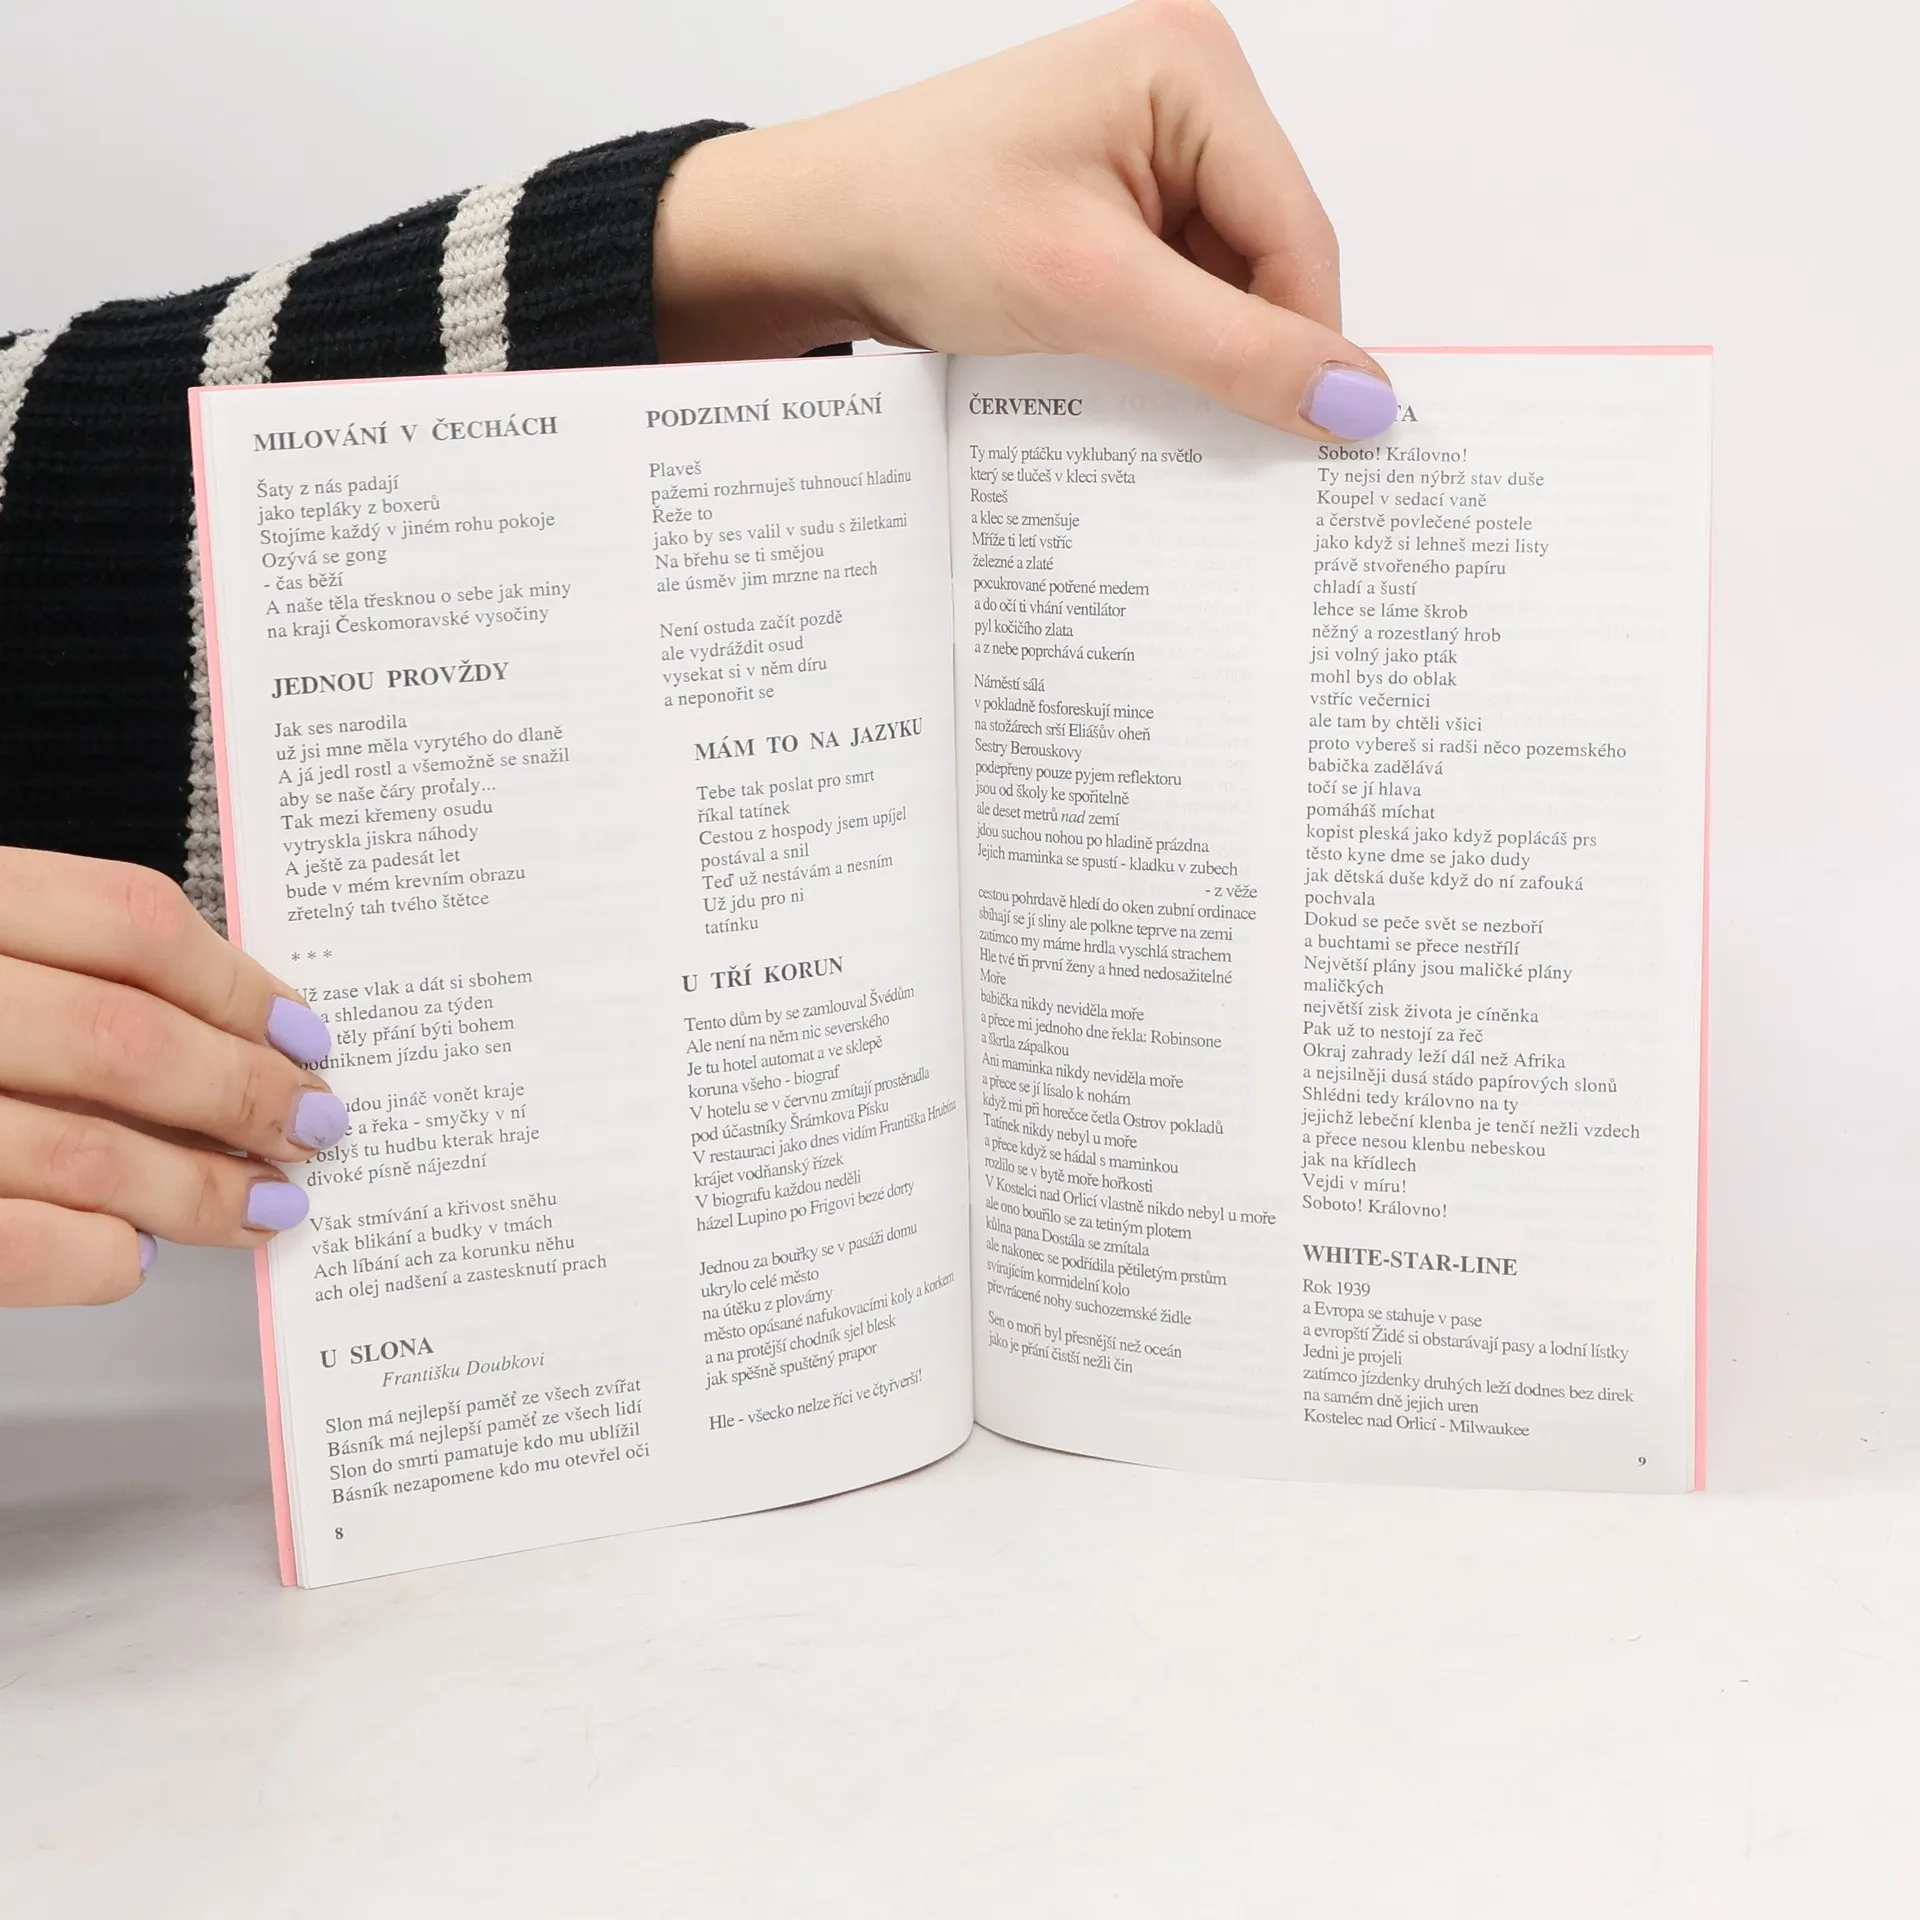 MILOVÁNÍ V ČECHÁCH
Šaty z nás padají
jako tepláky z boxerů
Stojíme každý v jiném rohu pokoje
Ozývá se gong
- čas běží
A naše těla třesknou o sebe jak miny
na kraji Českomoravské vysočiny
JEDNOU PROVŽDY
Jak ses narodila
už jsi mne měla vyrytého do dlaně
A já jedl rostl a všemožně se snažil
aby se naše čáry proťaly...
Tak mezi křemeny osudu
vytryskla jiskra náhody
A ještě za padesát let
bude v mém krevním obrazu
zřetelný tah tvého štětce
* * *
Už zase vlak a dát si sbohem
a shledanou za týden
těly přání býti bohem
podniknem jízdu jako sen
jináč vonět kraje
a řeka - smyčky v ní
Poslyš tu hudbu kterak hraje
divoké písně nájezdní
Však stmívání a křivost sněhu
však blikání a budky v tmách
Ach líbání ach za korunku něhu
ach olej nadšení a zastesknutí prach
U SLONA
Františku Doubkovi
Slon má nejlepší paměť ze všech zvířat
Básník má nejlepší paměť ze všech lidí
Slon do smrti pamatuje kdo mu ublížil
Básník nezapomene kdo mu otevřel oči
8
PODZIMNÍ KOUPÁNÍ
Plaveš
pažemi rozhrnuješ tuhnoucí hladinu
Řeže to
jako by ses valil v sudu s žiletkami
Na břehu se ti smějou
ale úsměv jim mrzne na rtech
Není ostuda začít pozdě
ale vydráždit osud
vysekat si v něm díru
a neponořit se
MÁM TO NA JAZYKU
Tebe tak poslat pro smrt
říkal tatínek
Cestou z hospody jsem upíjel
postával a snil
Teď už nestávám a nesním
Už jdu pro ni
tatínku
U TŘÍ KORUN
Tento dům by se zamlouval Švédům
Ale není na něm nic severského
Je tu hotel automat a ve sklepě
koruna všeho - biograf
V hotelu se v červnu zmítají prostěradla
pod účastníky Šrámkova Písku
V restauraci jako dnes vidím Františka Hrubína
krájet vodňanský řízek
V biografu každou neděli
házel Lupino po Frigovi bezé dorty
Jednou za bouřky se v pasáži domu
ukrylo celé město
na útěku z plovárny
město opásané nafukovacími koly a korkem
a na protější chodník sjel blesk
jak spěšně spuštěný prapor
Hle - všecko nelze říci ve čtyřverší!
ČERVENEC
Ty malý ptáčku vyklubaný na světlo
který se tlučeš v kleci světa
Rosteš
a klec se zmenšuje
Mříže ti letí vstříc
železné a zlaté
pocukrované potřené medem
a do očí ti vhání ventilátor
pyl kočičího zlata
a z nebe poprchává cukerín
Náměstí sálá
v pokladně fosforeskují mince
na stožárech srší Eliášův oheň
Sestry Berouskovy
podepřeny pouze pyjem reflektoru
jsou od školy ke spořitelně
ale deset metrů nad zemí
jdou suchou nohou po hladině prázdna
Jejich maminka se spustí - kladku v zubech
- z věže
cestou pohrdavě hledí do oken zubní ordinace
sbíhají se jí sliny ale polkne teprve na zemi
zatímco my máme hrdla vyschlá strachem
Hle tvé tři první ženy a hned nedosažitelné
Moře
babička nikdy neviděla moře
a přece mi jednoho dne řekla: Robinsone
a škrtla zápalkou
Ani maminka nikdy neviděla moře
a přece se jí lísalo k nohám
když mi při horečce četla Ostrov pokladů
Tatínek nikdy nebyl u moře
a přece když se hádal s maminkou
rozlilo se v bytě moře hořkosti
V Kostelci nad Orlicí vlastně nikdo nebyl u moře
ale ono bouřilo se za tetiným plotem
kůlna pana Dostála se zmítala
ale nakonec se podřídila pětiletým prstům
svírajícím kormidelní kolo
převrácené nohy suchozemské židle
Sen o moři byl přesnější než oceán
jako je přání čistší nežli čin
TA
Soboto! Královno!
Ty nejsi den nýbrž stav duše
Koupel v sedací vaně
a čerstvě povlečené postele
jako když si lehneš mezi listy
právě stvořeného papíru
chladí a šustí
lehce se láme škrob
něžný a rozestlaný hrob
jsi volný jako pták
mohl bys do oblak
vstříc večernici
ale tam by chtěli všici
proto vybereš si radši něco pozemského
babička zadělává
točí se jí hlava
pomáháš míchat
kopist pleská jako když poplácáš prs
těsto kyne dme se jako dudy
jak dětská duše když do ní zafouká
pochvala
Dokud se peče svět se nezboří
a buchtami se přece nestřílí
Největší plány jsou maličké plány
maličkých
největší zisk života je cíněnka
Pak už to nestojí za řeč
Okraj zahrady leží dál než Afrika
a nejsilněji dusá stádo papírových slonů
Shlédni tedy královno na ty
jejichž lebeční klenba je tenčí nežli vzdech
a přece nesou klenbu nebeskou
jak na křídlech
Vejdi v míru!
Soboto! Královno!
WHITE-STAR-LINE
Rok 1939
a Evropa se stahuje v pase
a evropští Židé si obstarávají pasy a lodní lístky
Jedni je projeli
zatímco jízdenky druhých leží dodnes bez direk
na samém dně jejich uren
Kostelec nad Orlicí - Milwaukee
9